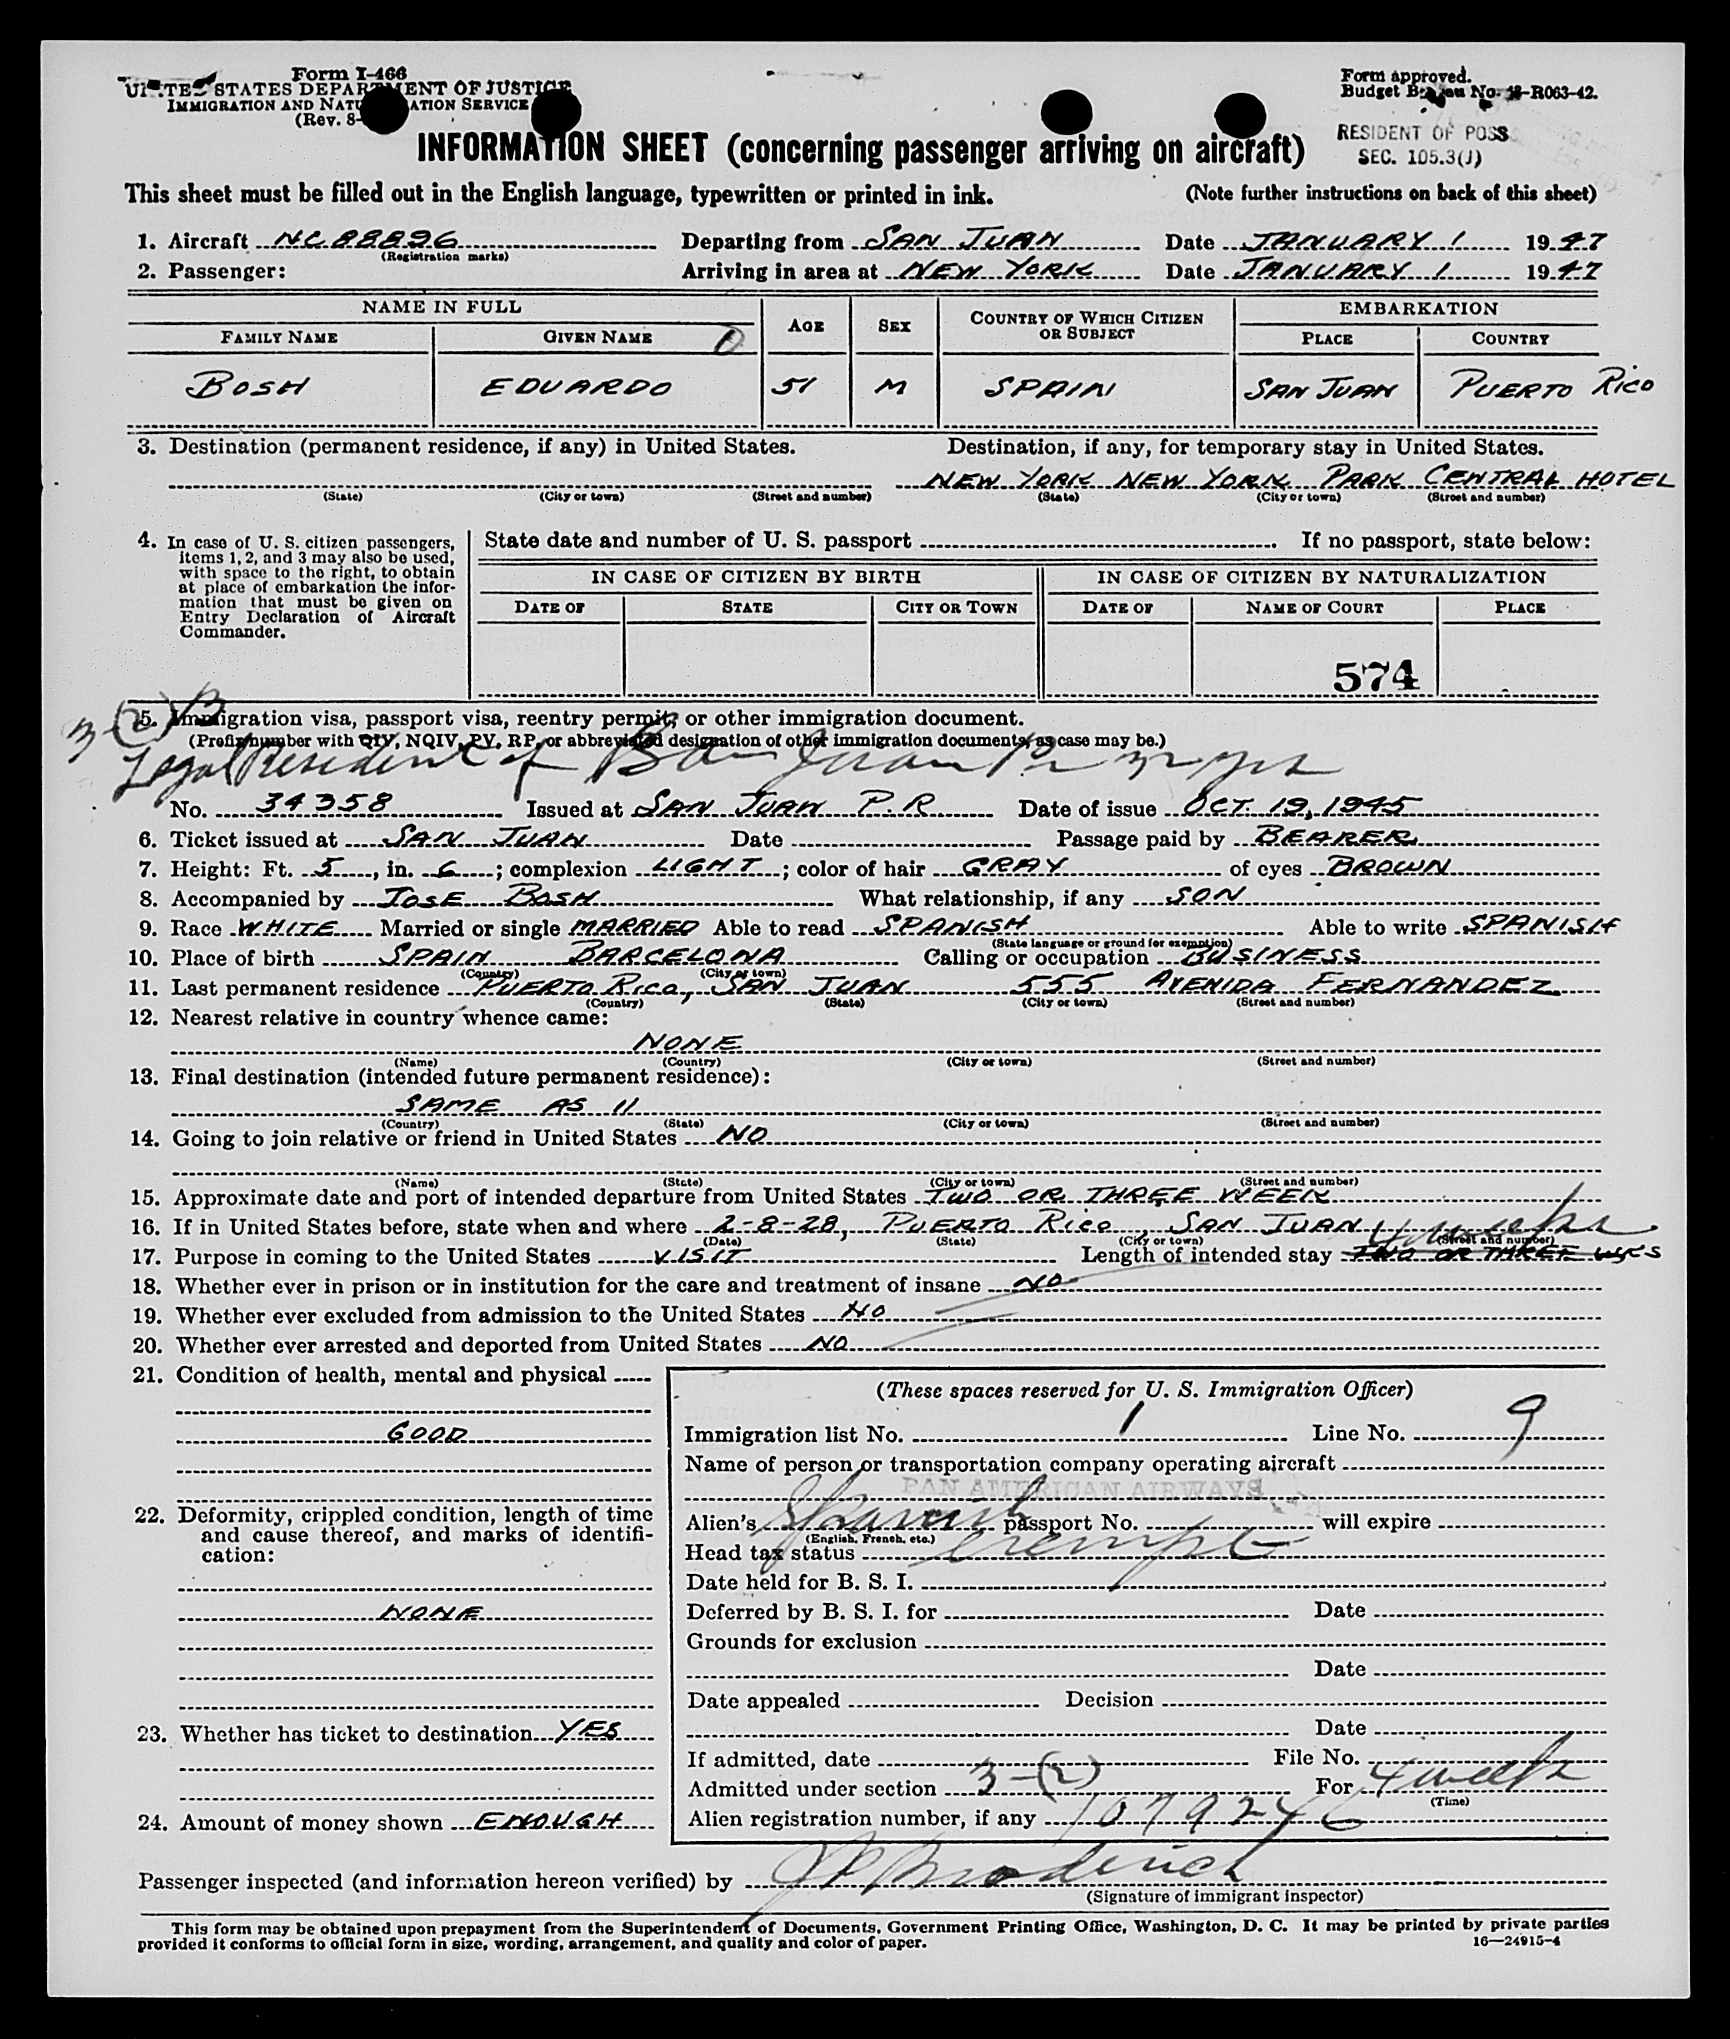 Form I-466
UNITED STATES DEPARTMENT OF JUSTICE
IMMIGRATION AND NATURALIZATION SERVICE
(Rev. 8-
Form approved.
Budget Bureau No. -R063-42.
RESIDENT OF POSS
SEC. 105.3(J)
INFORMATION SHEET (concerning passenger arriving on aircraft)
This sheet must be filled out in the English language, typewritten or printed in ink. (Note further instructions on back of this sheet)
1. Aircraft NC 88896 Departing from SAN JUAN Date JANUARY 1 1947
(Registration marks)
2. Passenger: Arriving in area at NEW YORK Date JANUARY 1 1947
NAME IN FULL EMBARKATION
FAMILY NAME GIVEN NAME AGE SEX COUNTRY OF WHICH CITIZEN OR SUBJECT PLACE COUNTRY
BOSH EDUARDO 51 M SPAIN SAN JUAN PUERTO RICO
3. Destination (permanent residence, if any) in United States. Destination, if any, for temporary stay in United States.
NEW YORK NEW YORK PARK CENTRAL HOTEL
(State) (City or town) (Street and number) (State) (City or town) (Street and number)
4. In case of U. S. citizen passengers,
items 1, 2, and 3 may also be used,
with space to the right, to obtain
at place of embarkation the infor-
mation that must be given on
Entry Declaration of Aircraft
Commander.
State date and number of U. S. passport If no passport, state below:
IN CASE OF CITIZEN BY BIRTH IN CASE OF CITIZEN BY NATURALIZATION
DATE OF STATE CITY OR TOWN DATE OF NAME OF COURT PLACE
574
3-(2)
5. Immigration visa, passport visa, reentry permit, or other immigration document.
(Prefix number with QIV, NQIV, PV, RP, or abbreviated designation of other immigration documents, as case may be.)
Legal Resident of San Juan
No. 34358 Issued at SAN JUAN P.R Date of issue OCT. 19, 1945
6. Ticket issued at SAN JUAN Date Passage paid by BEARER
7. Height: Ft. 5, in. 6; complexion LIGHT; color of hair GRAY of eyes BROWN
8. Accompanied by JOSE BOSH What relationship, if any SON
9. Race WHITE Married or single MARRIED Able to read SPANISH Able to write SPANISH
(State language or ground for exemption)
10. Place of birth SPAIN BARCELONA Calling or occupation BUSINESS
(Country) (City or town)
11. Last permanent residence PUERTO RICO, SAN JUAN 555 AVENIDA FERNANDEZ
(Country) (State) (City or town) (Street and number)
12. Nearest relative in country whence came:
NONE
(Name) (Country) (City or town) (Street and number)
13. Final destination (intended future permanent residence):
SAME AS 11
(Country) (State) (City or town) (Street and number)
14. Going to join relative or friend in United States NO
(Name) (State) (City or town) (Street and number)
15. Approximate date and port of intended departure from United States TWO OR THREE WEEK
16. If in United States before, state when and where 2-8-28, PUERTO RICO, SAN JUAN
(Date) (State) (City or town) (Street and number)
4 weeks
17. Purpose in coming to the United States VISIT Length of intended stay TWO OR THREE WKS
18. Whether ever in prison or in institution for the care and treatment of insane NO
19. Whether ever excluded from admission to the United States NO
20. Whether ever arrested and deported from United States NO
21. Condition of health, mental and physical
GOOD
22. Deformity, crippled condition, length of time
and cause thereof, and marks of identifi-
cation:
NONE
23. Whether has ticket to destination YES
24. Amount of money shown ENOUGH
(These spaces reserved for U. S. Immigration Officer)
Immigration list No. 1 Line No. 9
Name of person or transportation company operating aircraft
PAN AMERICAN AIRWAYS
Alien's Spanish passport No. will expire
(English, French, etc.)
Head tax status exempt
Date held for B. S. I.
Deferred by B. S. I. for Date
Grounds for exclusion
Date
Date appealed Decision
Date
If admitted, date File No.
Admitted under section 3-(2) For 4 weeks
(Time)
Alien registration number, if any 1079246
Passenger inspected (and information hereon verified) by
(Signature of immigrant inspector)
This form may be obtained upon prepayment from the Superintendent of Documents, Government Printing Office, Washington, D. C. It may be printed by private parties
provided it conforms to official form in size, wording, arrangement, and quality and color of paper. 16—24915-4